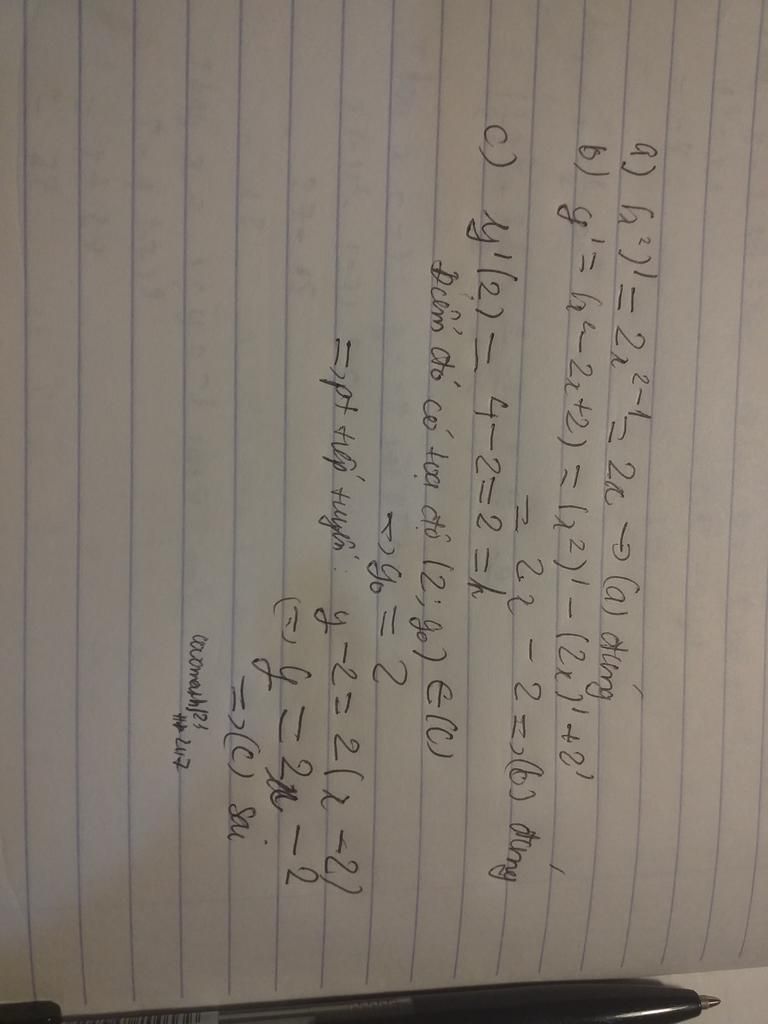 a) (x²)' = 2x²⁻¹ = 2x → (a) đúng
b) y' = (x² - 2x + 2) = (x²)' - (2x)' + 2'
= 2x - 2 => (b) đúng
c) y'(2) = 4 - 2 = 2 = k
Điểm đó có tọa độ (2; y₀) ∈ (C)
=> y₀ = 2
=> pt tiếp tuyến: y - 2 = 2(x - 2)
(=) y = 2x - 2
=> (c) sai